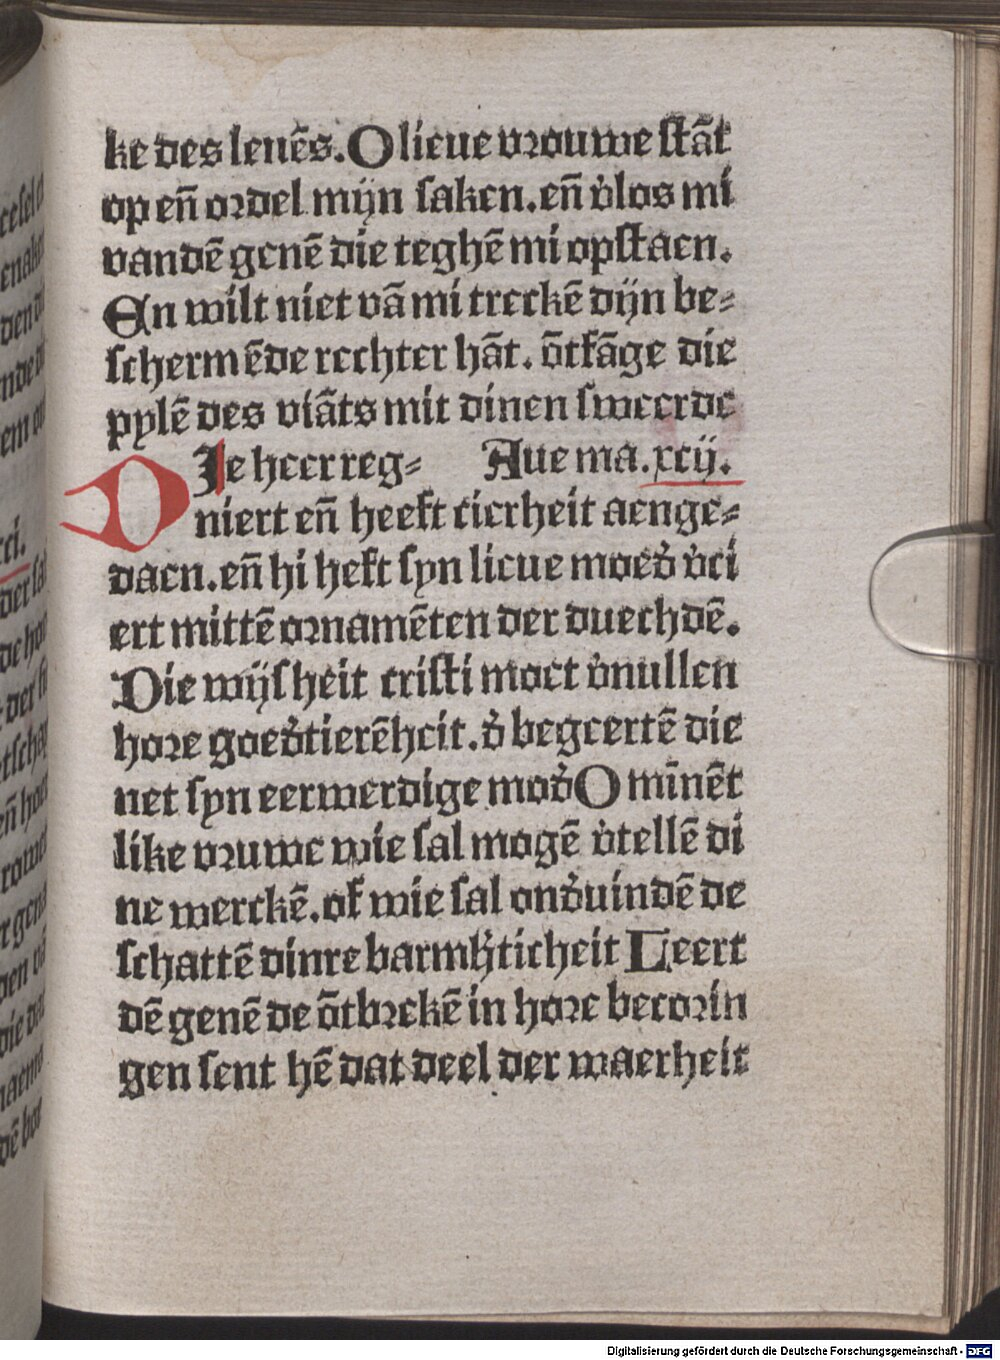 ke des leuēs. O lieue vrouwe stāt
op eñ ordel mijn saken. eñ v̓los mi
vandē genē die teghē mi opstaen.
En wilt niet vā mi treckē dijn be⸗
schermēde rechter hāt. ōtfāge die
pylē des viāts mit dinen sweerde
DIe heer reg⸗ Aue ma. xcij.
niert eñ heeft cierheit aenge⸗
daen. eñ hi heft syn lieue moed̓ v̓ci
ert mittē ornamēten der duechdē.
Die wijsheit cristi moet v̓nullen
hore goed̓tierēheit. d̓ begeertē die
net syn eerwerdige mod̓ O minēt
like vruwe wie sal mogē v̓tellē di
ne werckē. of wie sal ond̓uindē de
schattē dinre barmh̓ticheit Leert
dē genē de ōtbrekē in hore becorin
gen sent hē dat deel der waerheit
Digitalisierung gefördert durch die Deutsche Forschungsgemeinschaft - DFG